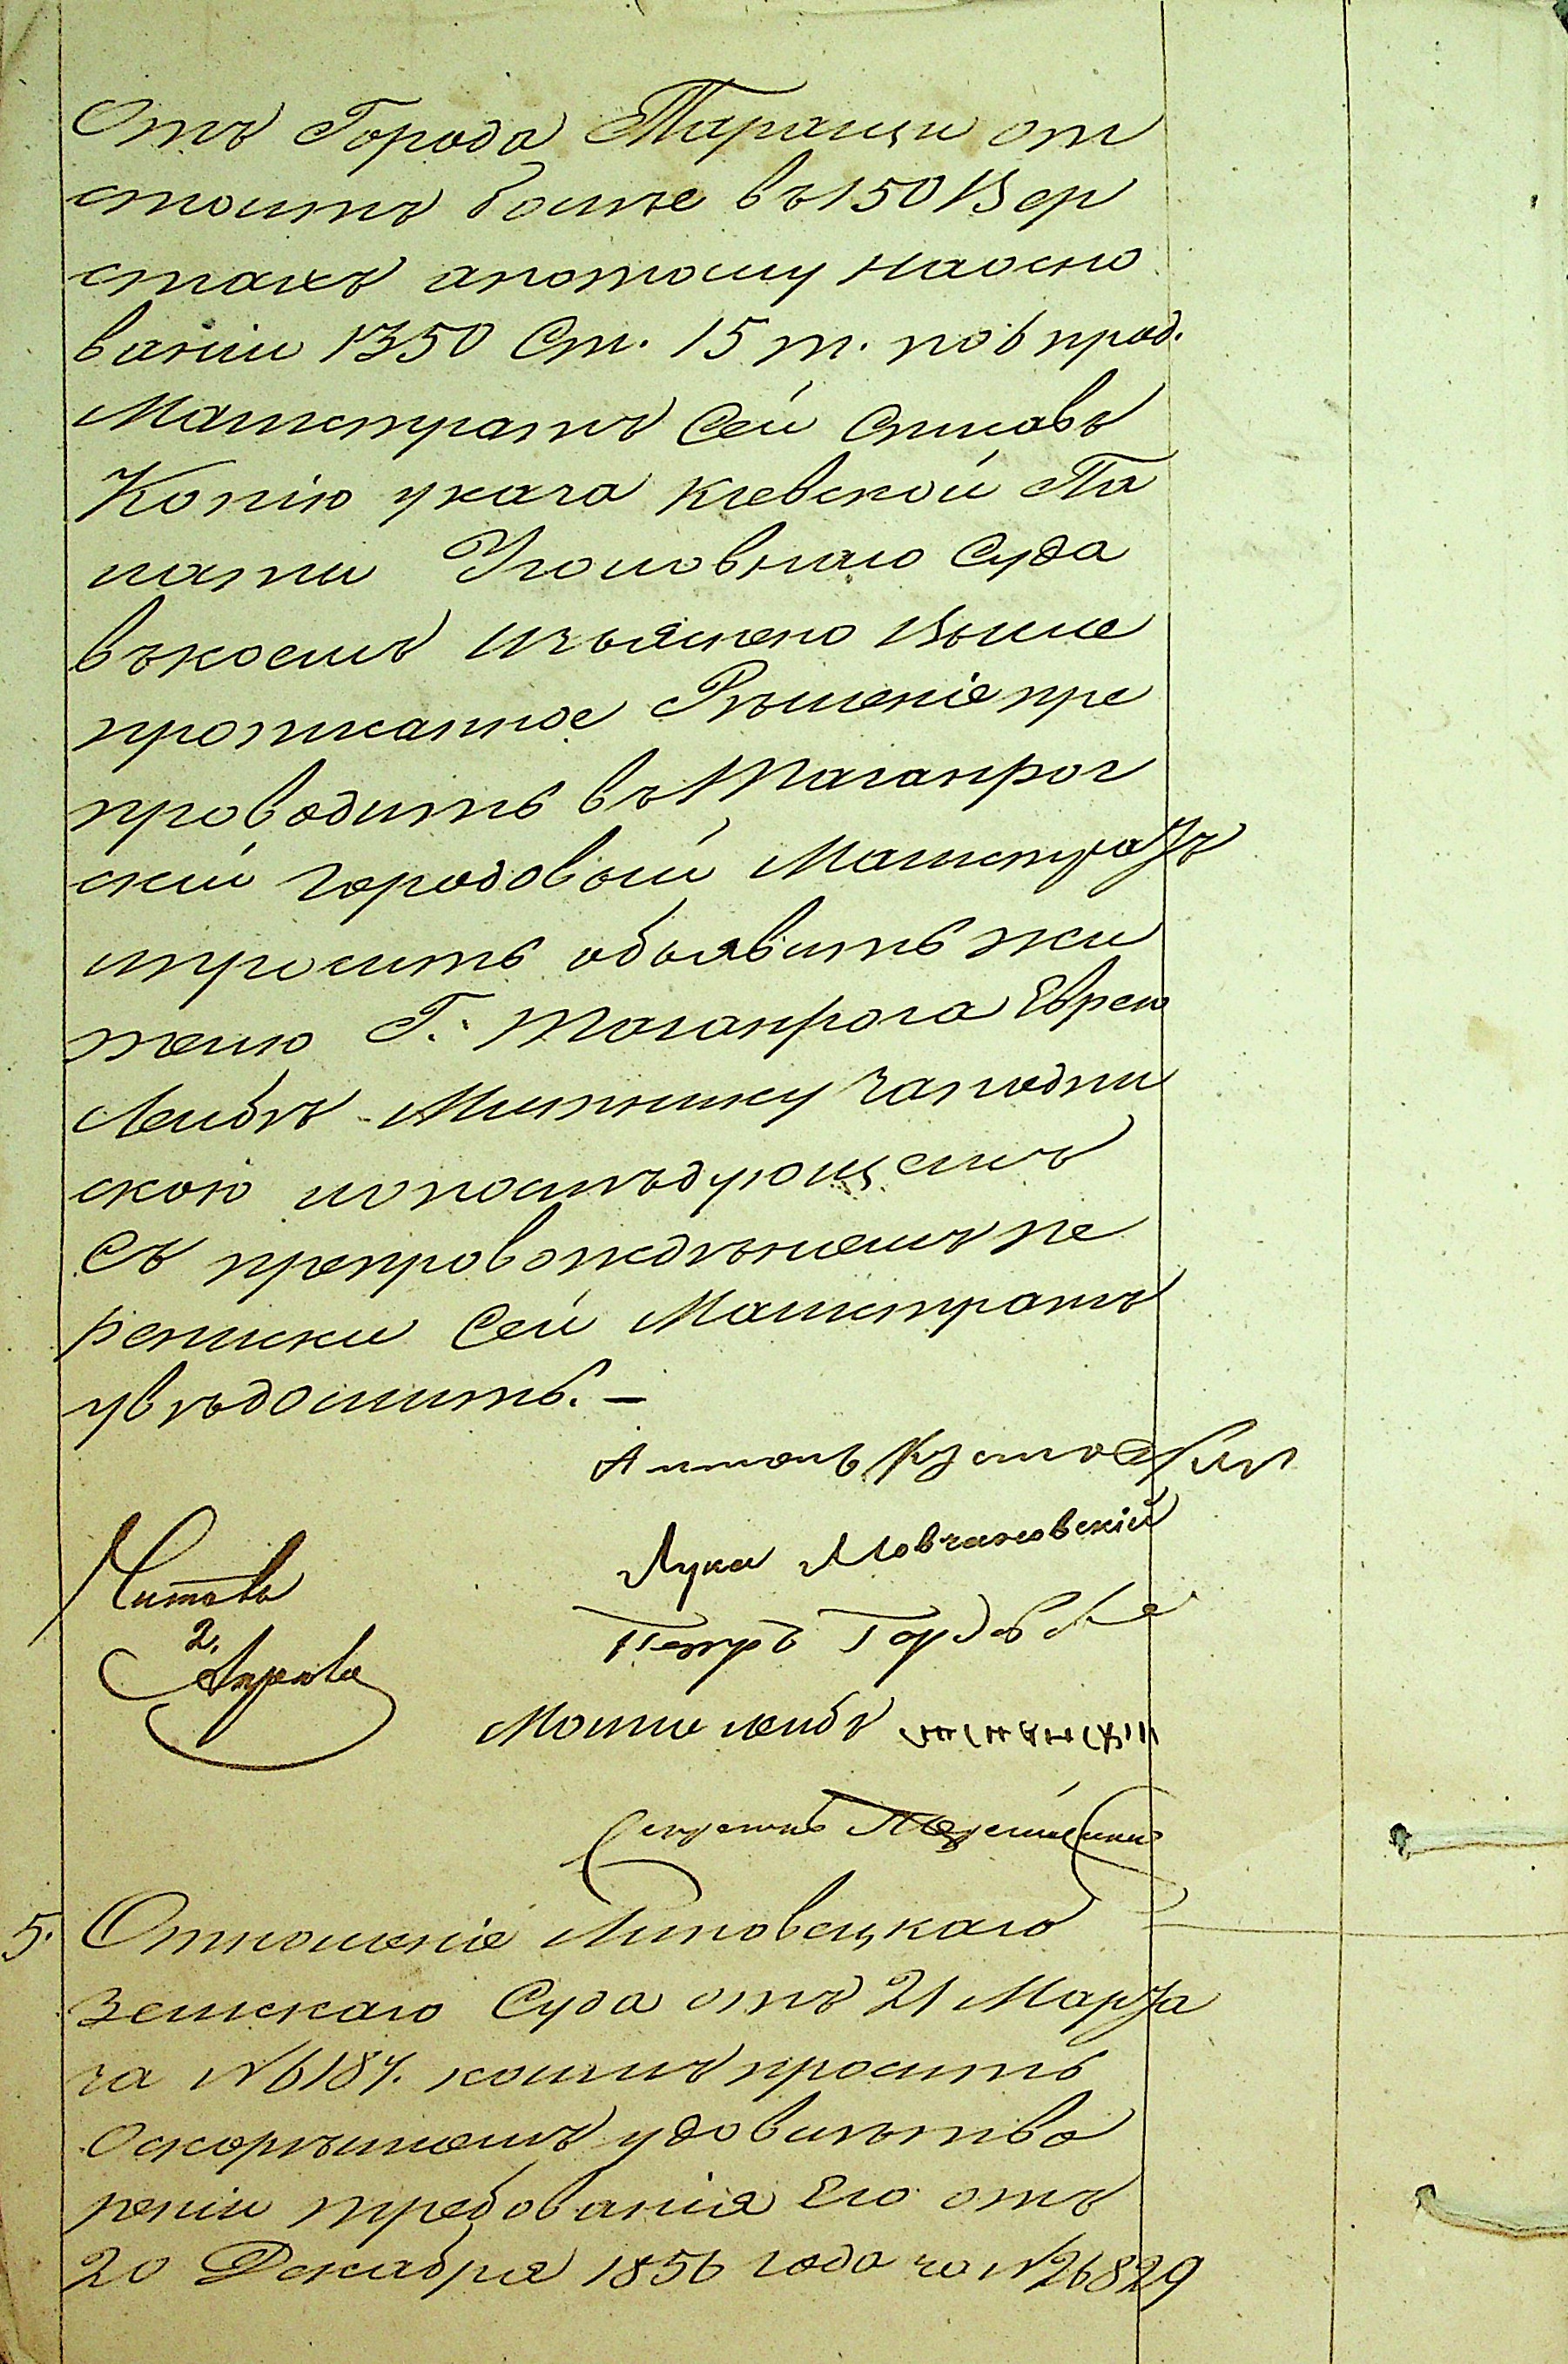 Отъ Города Таращи от
стоитъ более въ 150 Вер
стахъ апотому наосно
ваніи 1350 Ст. 15 т. по 6 прод.
Магистратъ Сей Списавъ
Копію указа Кіевской Па
латы Уголовнаго Суда
въкоемъ изъяснено Выше
прописанное Рѣшеніе пре
проводить въ Таганрог
скій городовый Магистратъ
ипросить объявить жи
телю Г. Таганрога Еврею
Лейбѣ Митнику заподпи
скою ипопослѣдующемъ
Съ препровождѣніемъ пе
реписки Сей Магистратъ
увѣдомить. —
Антонъ
Лука Мовчановскій
Читалъ
Петръ
2.
Апрѣля
Мошко лейбъ
Секретарь
5. Отношеніе Липовецкаго
Земскаго Суда отъ 21 Марта
за № 6187. коимъ проситъ
Оскорѣйшемъ удовлѣтво
реніи требованія Его отъ
20 Декабря 1856 года за № 26829